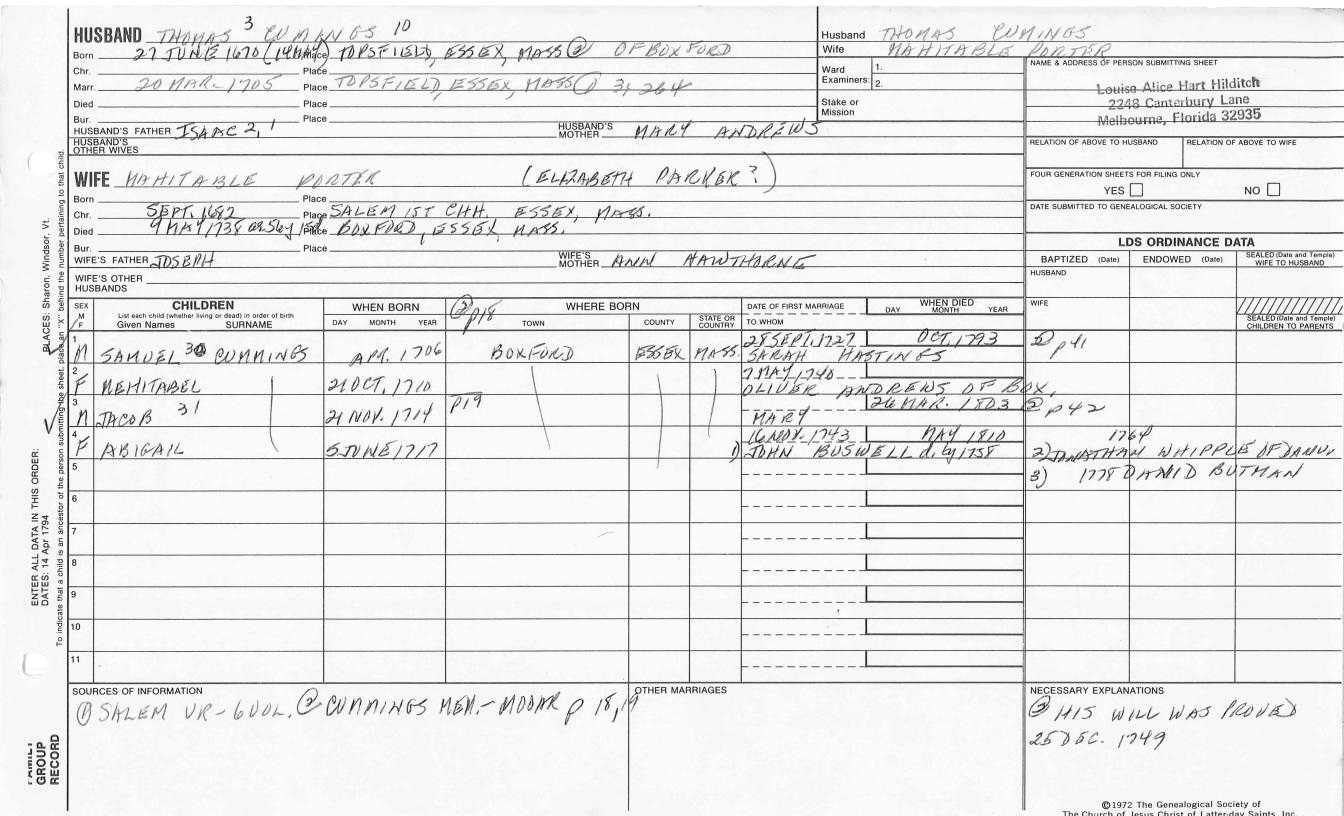 HUSBAND THOMAS 3 CUMANGS 10
Born 27 JUNE 1670 (19MAY) Place TOPSFIELD, ESSEX, MASS ② OF BOXFORD
Chr. Place
Marr. 20 MAR. 1705 Place TOPSFIELD, ESSEX, MASS ① 3, 264
Died Place
Bur. Place
HUSBAND'S FATHER ISAAC 2, 1 HUSBAND'S MOTHER MARY ANDREWS
HUSBAND'S OTHER WIVES
Husband THOMAS CUMINGS
Wife MAHITABLE PORTER
Ward Examiners: 1.
2.
Stake or Mission
NAME & ADDRESS OF PERSON SUBMITTING SHEET
Louise Alice Hart Hilditch
2248 Canterbury Lane
Melbourne, Florida 32935
RELATION OF ABOVE TO HUSBAND RELATION OF ABOVE TO WIFE
FOUR GENERATION SHEETS FOR FILING ONLY
YES NO
DATE SUBMITTED TO GENEALOGICAL SOCIETY
WIFE MAHITABLE PORTER (ELIZABETH PARKER?)
Born Place
Chr. SEPT. 1682 Place SALEM 1ST CHH. ESSEX, MASS.
Died 9 MAY 1738 Place BOXFORD, ESSEX, MASS.
Bur. Place
WIFE'S FATHER JOSEPH WIFE'S MOTHER ANN HAWTHORNE
WIFE'S OTHER HUSBANDS
LDS ORDINANCE DATA
BAPTIZED (Date) ENDOWED (Date) SEALED (Date and Temple) WIFE TO HUSBAND
HUSBAND
WIFE
SEALED (Date and Temple) CHILDREN TO PARENTS
SEX M F
CHILDREN
List each child (whether living or dead) in order of birth
Given Names SURNAME
WHEN BORN
DAY MONTH YEAR
② p18 WHERE BORN
TOWN COUNTY STATE OR COUNTRY
DATE OF FIRST MARRIAGE
TO WHOM
WHEN DIED
DAY MONTH YEAR
1 M SAMUEL 30 CUMMINGS APR. 1706 BOXFORD ESSEX MASS. 28 SEPT. 1727 OCT. 1793 ② p41
SARAH HASTINGS
2 F MEHITABEL 21 OCT. 1710 7 MAY 1740
OLIVER ANDREWS OF BOX.
3 M JACOB 31 21 NOV. 1714 p19 26 MAR. 1803 ② p42
MARY
4 F ABIGAIL 5 JUNE 1717 16 NOV. 1743 MAY 1810 1764
1) JOHN BUSWELL d. by 1758 2) JONATHAN WHIPPLE OF DANV.
5 3) 1778 DAVID BUTMAN
6
7
8
9
10
11
SOURCES OF INFORMATION
① SALEM VR - 6 VOL. ② CUMMINGS MEM. - MOOAR p 18, 19
OTHER MARRIAGES
NECESSARY EXPLANATIONS
③ HIS WILL WAS PROVED
25 DEC. 1749
©1972 The Genealogical Society of
The Church of Jesus Christ of Latter-day Saints, Inc.
ENTER ALL DATA IN THIS ORDER:
DATES: 14 Apr 1794 PLACES: Sharon, Windsor, Vt.
To indicate that a child is an ancestor of the person submitting the sheet, place an "X" behind the number pertaining to that child.
FAMILY GROUP RECORD